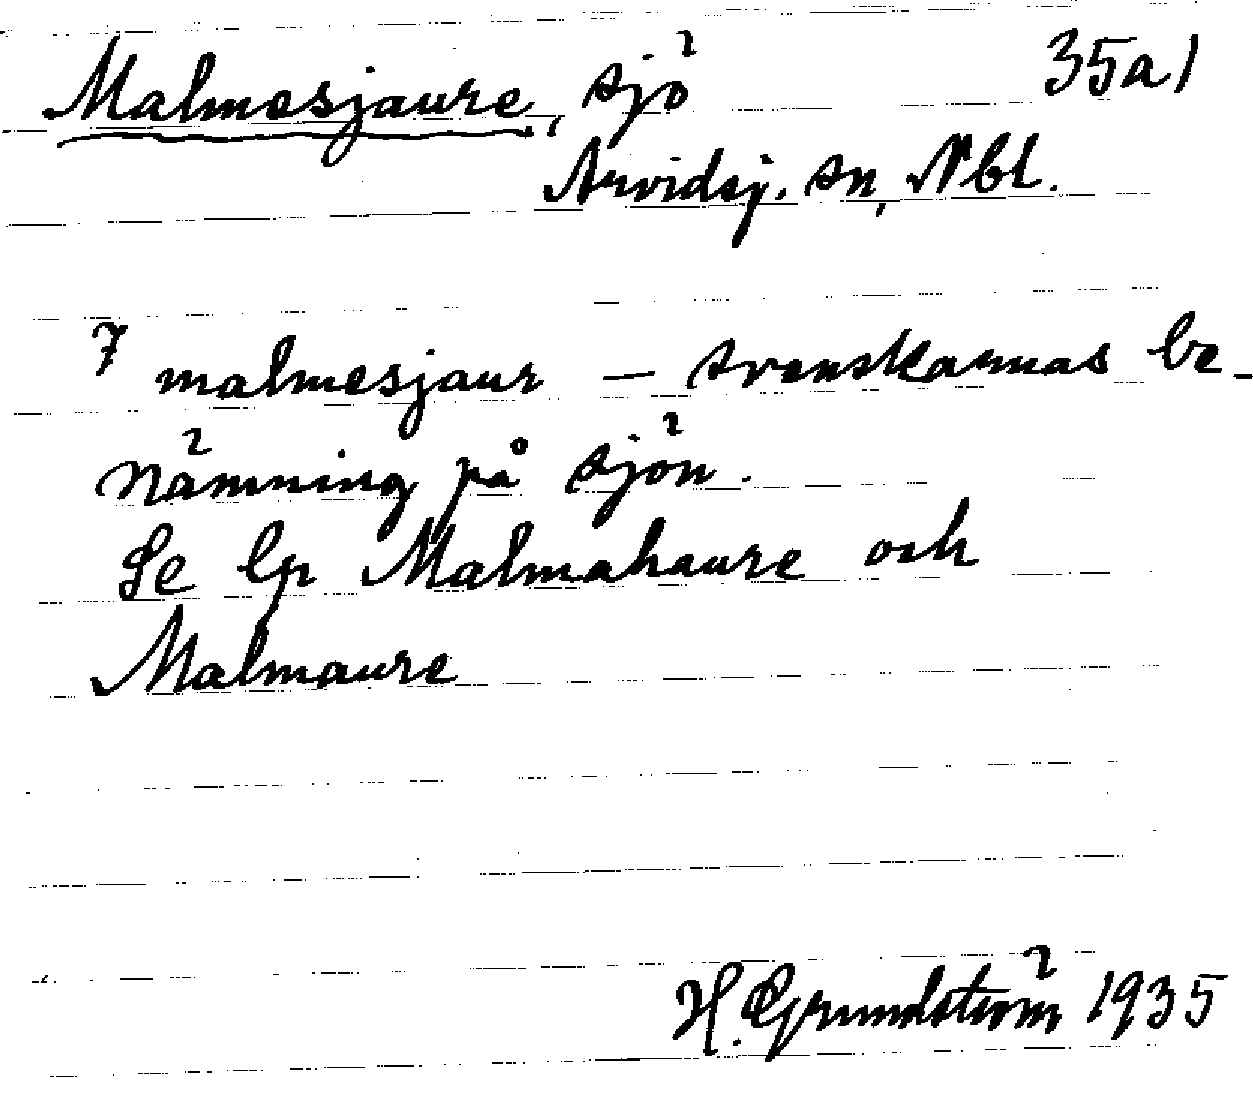 Malmesjaure, sjö 35a1
Arvidsj. sn, Nbt.
7 malmesjaur — svenskarnas be-
nämning på sjön.
Se lp Malmahaure och
Malmaure
H. Grundström 1935